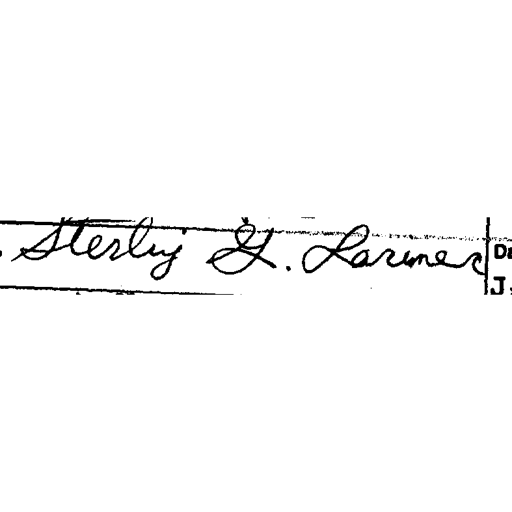 Sterling G. Larmer
Da
J.